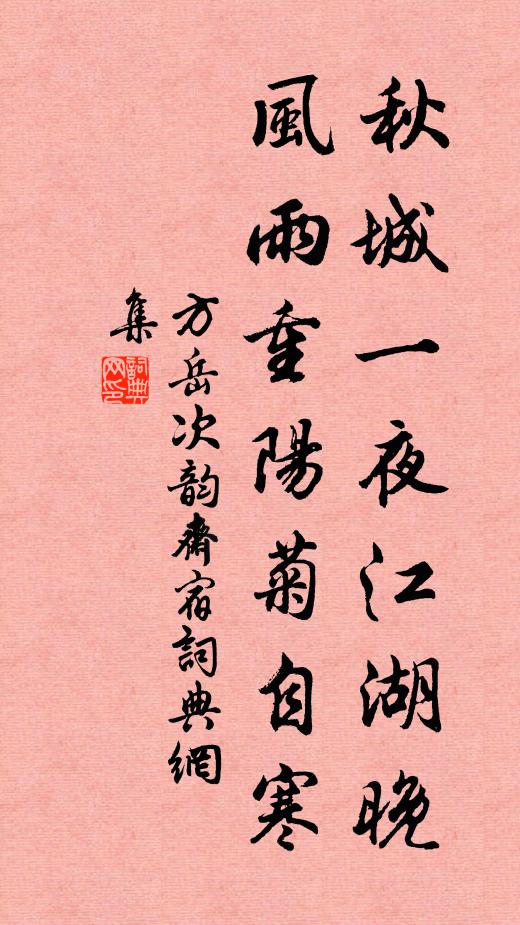 秋城一夜江湖晚
風雨重陽菊自寒
方岳次韵齋宿詞典網
集
詞典
网印